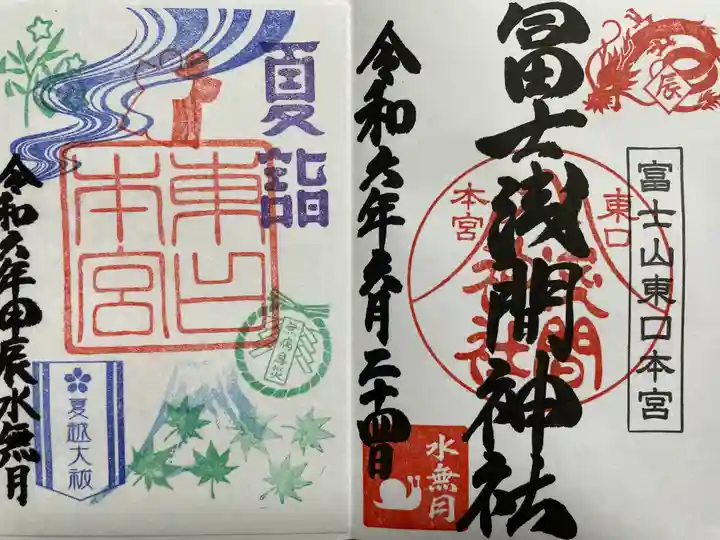 夏詣
東口
本宮
令和六年甲辰水無月
夏越大祓
無病息災
辰
富士山東口本宮
冨士浅間神社
東口
本宮
浅間
神社
令和六年六月二十四日
水無月